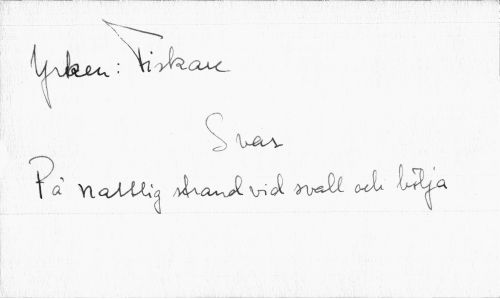 Yrken: Fiskare
Svar
På nattlig strand vid svall och bölja